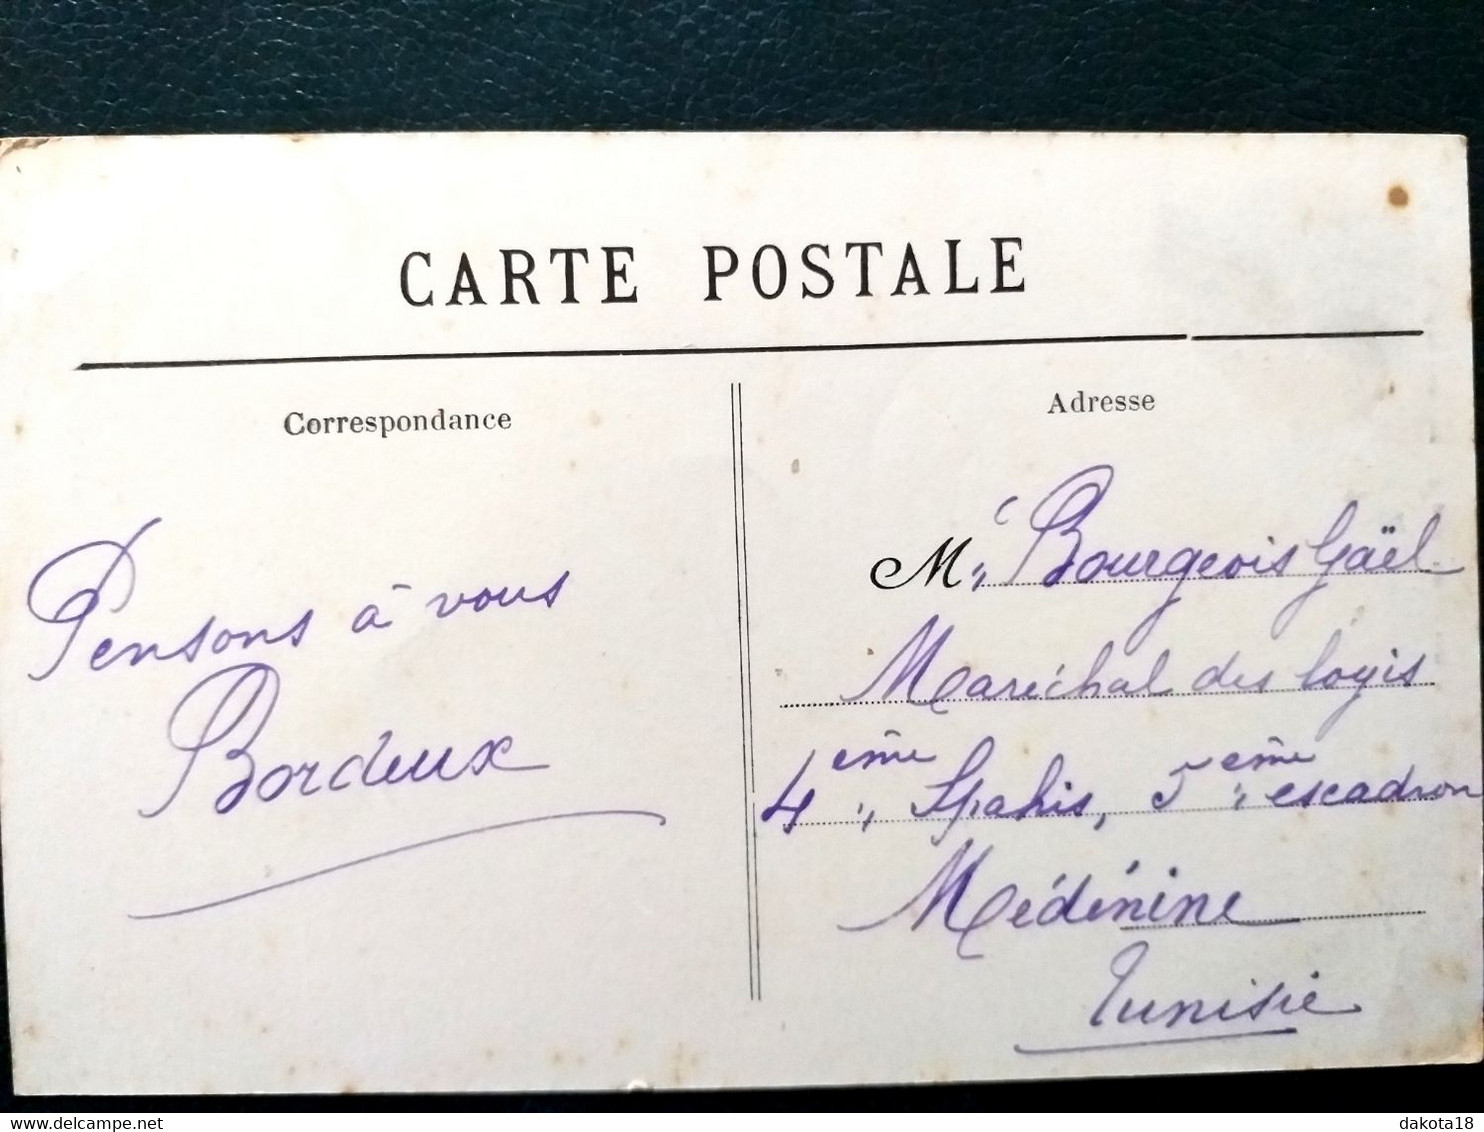 CARTE POSTALE
Correspondance
Pensons à vous
Bordeux
Adresse
Mr Bourgeois Gaël
Maréchal des logis
4ème Spahis, 5ème escadron
Médénine
Tunisie
delcampe.net
dakota18